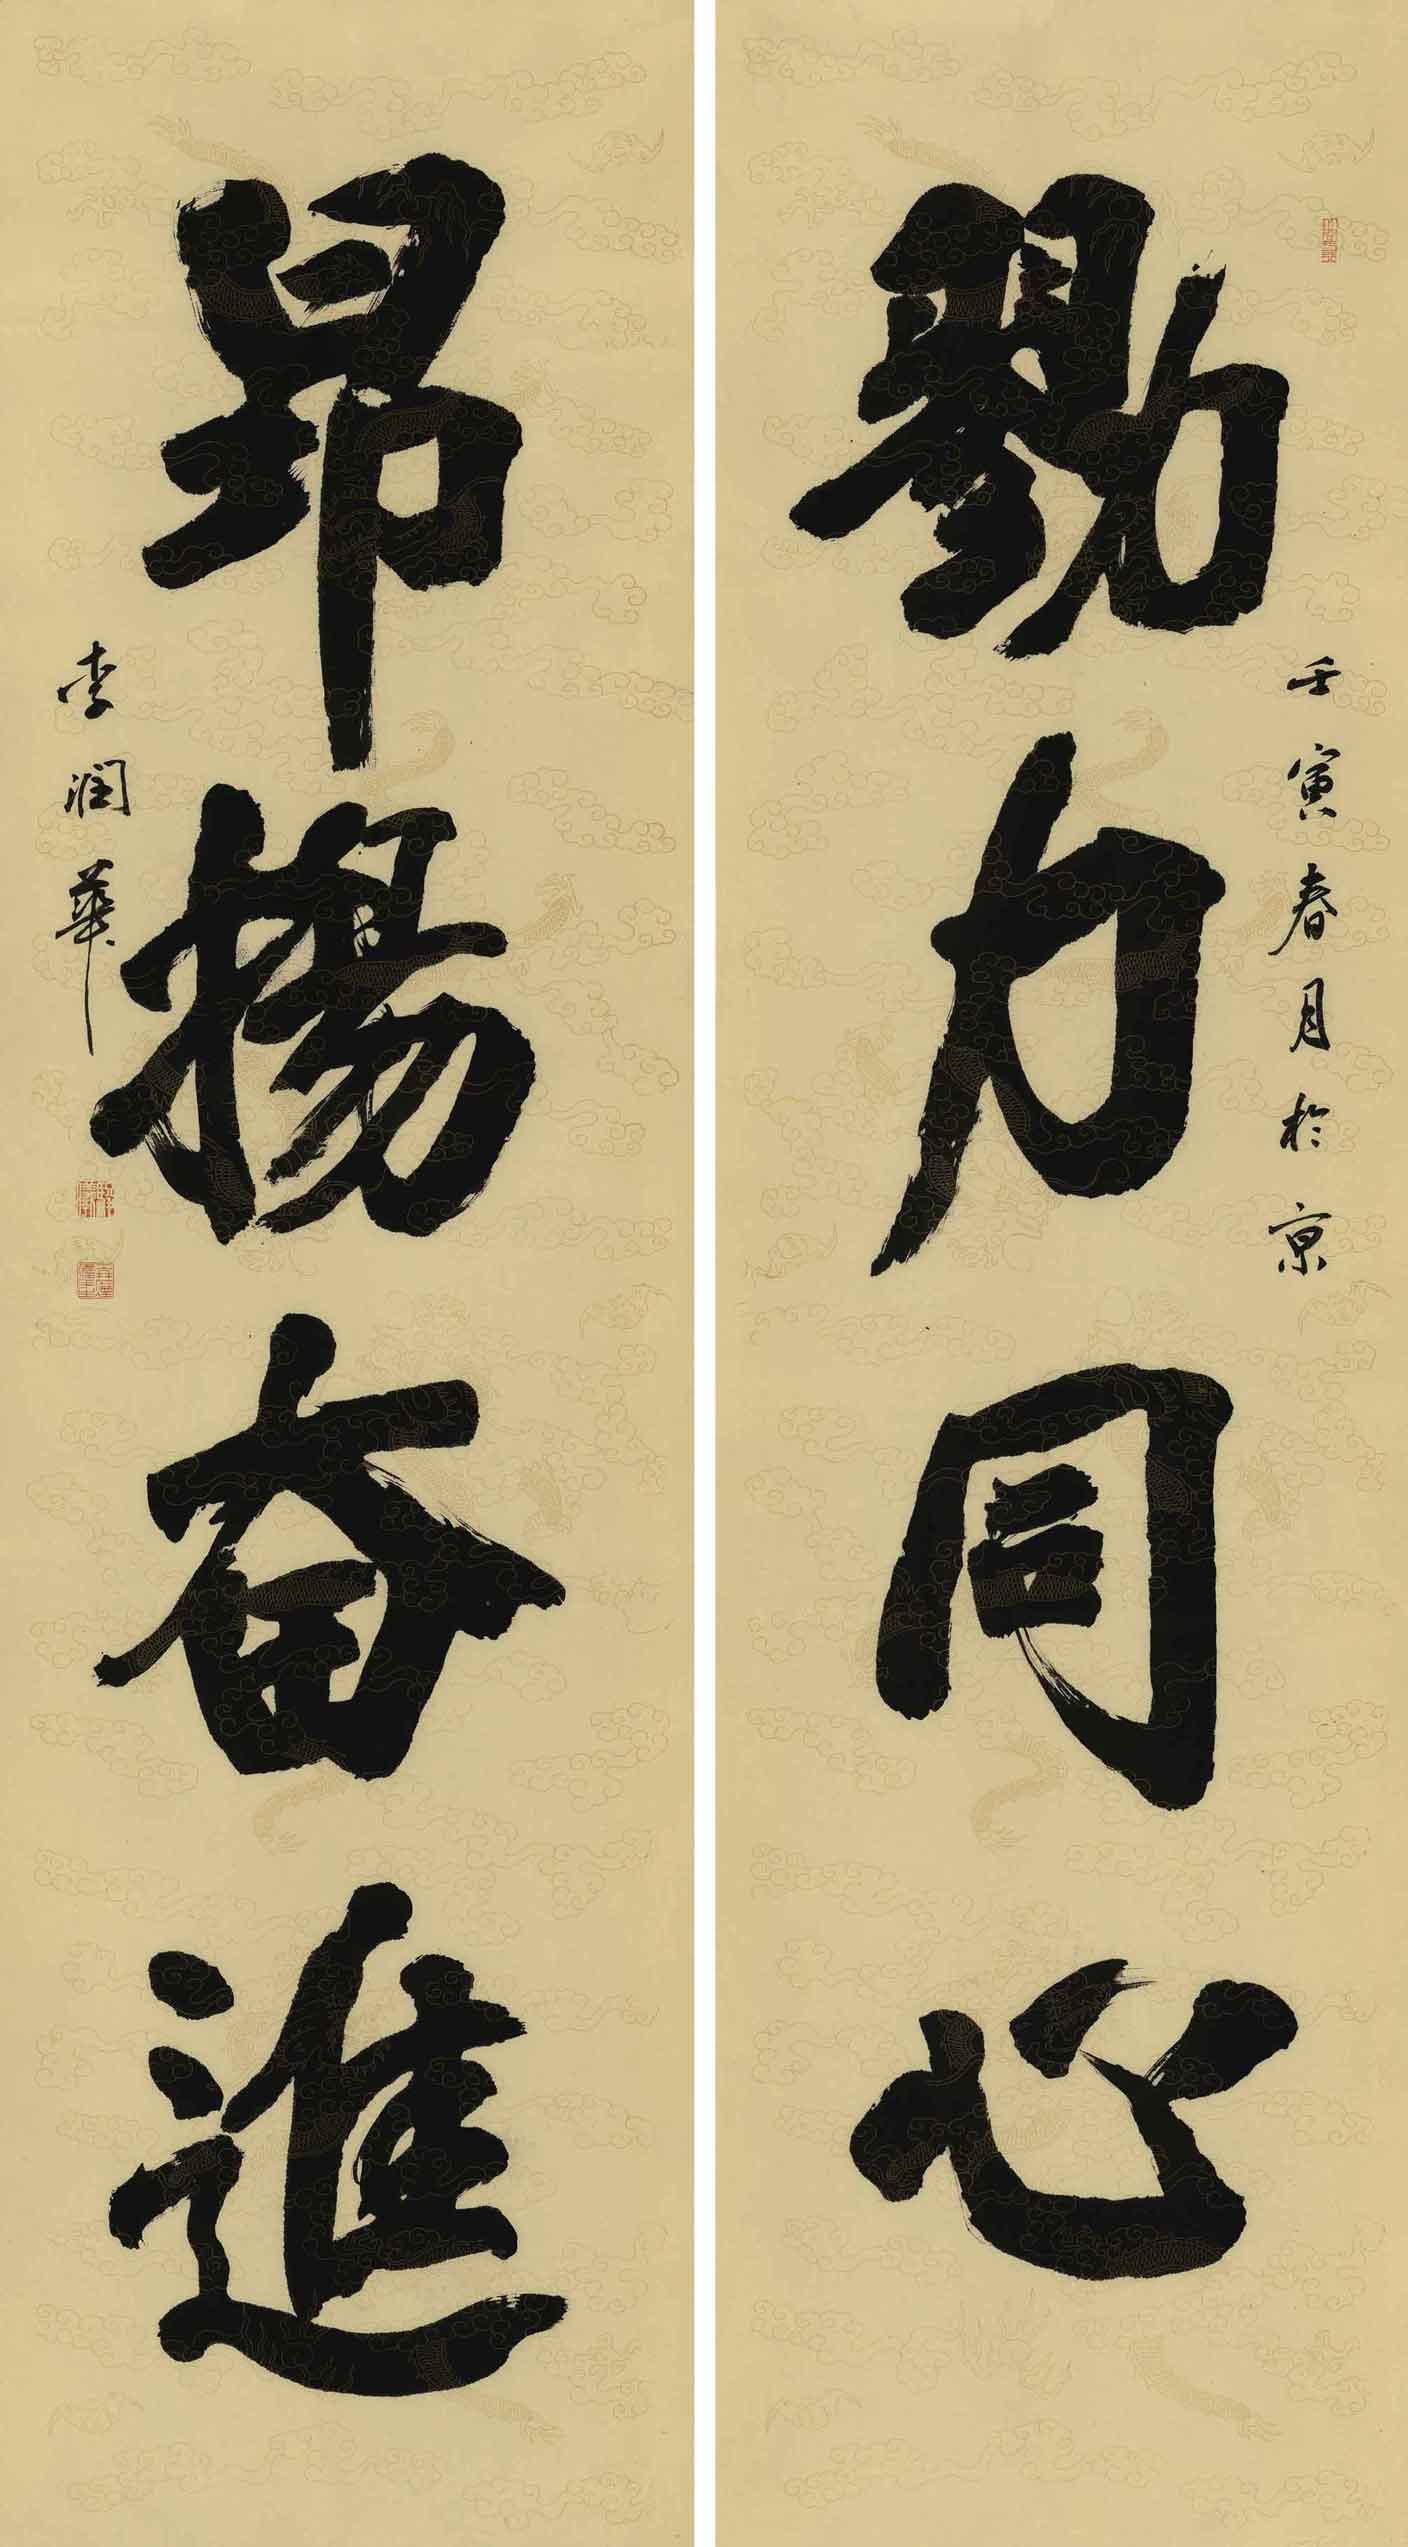 勠力同心
壬寅春月於京
昂揚奋進
李潤華